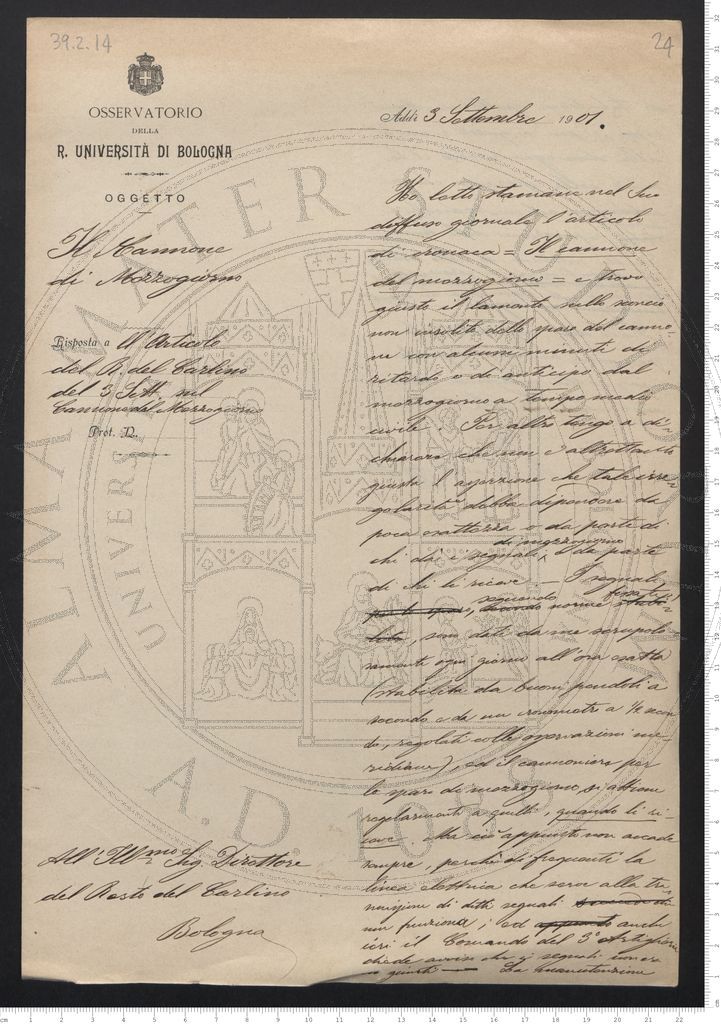 39.2.14
24
OSSERVATORIO
DELLA
R. UNIVERSITÀ DI BOLOGNA
OGGETTO
Il Cannone
di Mezzogiorno
Risposta a All'Articolo
del R. del Carlino
del 3 Sett. nel
Cannone del Mezzogiorno
Prot. N.
All'Ill.mo Sig. Direttore
del Resto del Carlino
Bologna
Addì 3 Settembre 1901.
Ho letto stamane nel Suo
diffuso giornale l'articolo
di cronaca = Il cannone
del mezzogiorno = e trovo
giusto il lamento sullo sconcio
non insolito dello sparo del canno-
ne con alcuni minuti di
ritardo o di anticipo dal
mezzogiorno a tempo medio
civile. Per altro tengo a di-
chiarare che non è altrettanto
giusta l'asserzione che tale irre-
golarità debba dipendere da
poca esattezza o da parte di
chi dai i segnali di mezzogiorno, o da parte
di chi li riceve. — I segnali,
secondo norme fisse
son dati da me scrupolo-
samente ogni giorno all'ora esatta
(stabilita da buoni pendoli a
secondo e da un cronometro a ½ secon-
do, regolati colle osservazioni me-
ridiane), ed il cannoniere per
lo sparo di mezzogiorno si attiene
regolarmente a quelli, quando li ri-
ceve. Ma ciò appunto non accade
sempre, perchè di frequente la
linea elettrica che serve alla tra-
smissione di detti segnali
non funziona; ed anche
ieri il Comando del 3° Artiglieria
chiede avviso che i segnali non era-
no giunti — La manutenzione
ALMA MATER STUDIORUM
UNIVERSITÀ
A.D. 1088